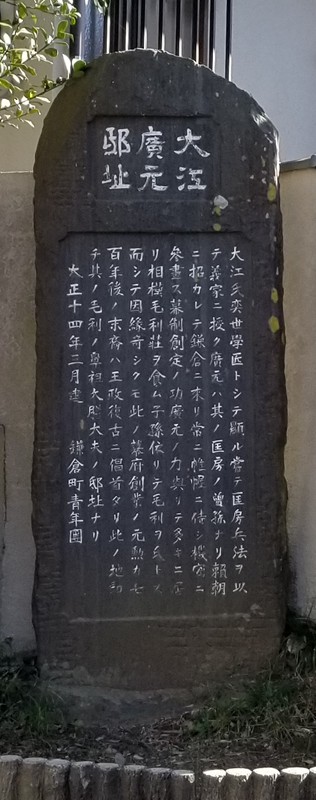 大江
廣元
邸址
大江氏奕世學匠トシテ顯ル嘗テ匡房兵法ヲ以
テ義家ニ授ク廣元ハ其ノ匡房ノ曽孫ナリ賴朝
ニ招カレテ鎌倉ニ來リ常ニ帷幄ニ侍シ機密ニ
參畫ス幕制創定ノ功廣元ノ力與リテ多キニ居
リ相模毛利莊ヲ食ム子孫依リテ毛利ヲ氏トス
而シテ因緣奇シクモ此ノ幕府創業ノ元勲カ七
百年後ノ末裔ハ王政復古ニ倡首タリ此ノ地即
チ其ノ毛利ノ鼻祖大膳大夫ノ邸址ナリ
大正十四年三月建 鎌倉町青年團